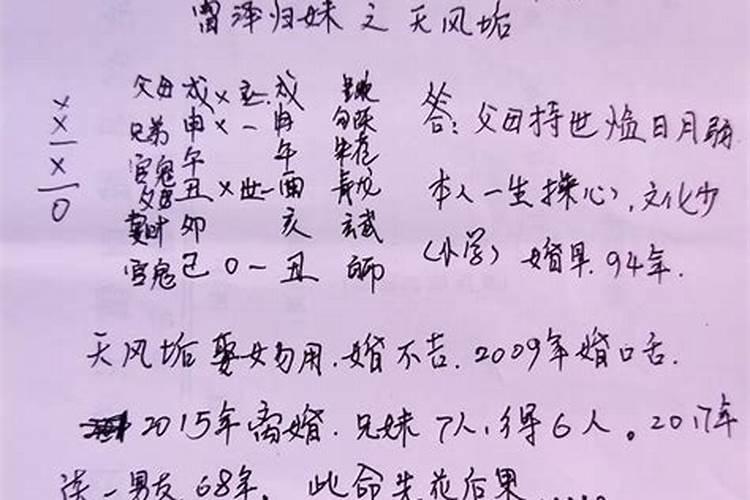 雷泽归妹之天风垢
父母 戌 × 应 戌
兄弟 申 × 一 申 勾陈
官鬼 午 午 朱雀
父母 丑 × 世 一 酉 青龙
妻财 卯 亥 玄武
官鬼 巳 0 一 丑
× × 一 × 一 0
答:父母持世临日月
本人一生操心,文化少
(小学) 婚早.94年.
天风垢 娶女勿用.婚不吉.2009年婚口舌.
2015年离婚.兄妹7人,得6人。2017年
一男友68年, 此命先花后果